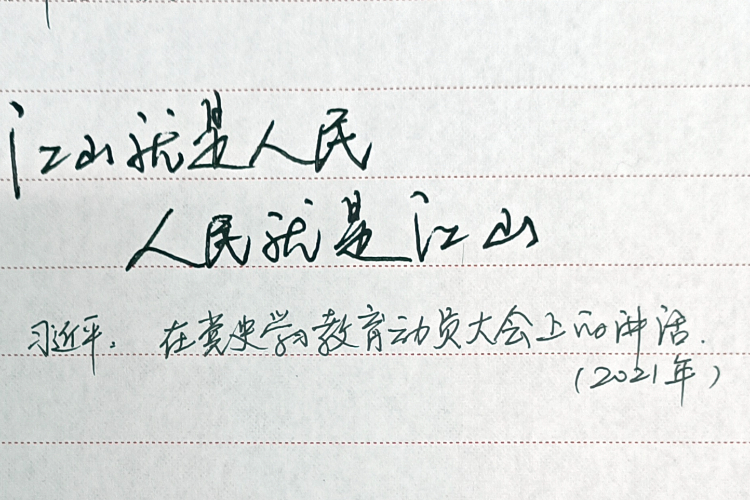 江山就是人民
人民就是江山
习近平：在党史学习教育动员大会上的讲话.
(2021年)